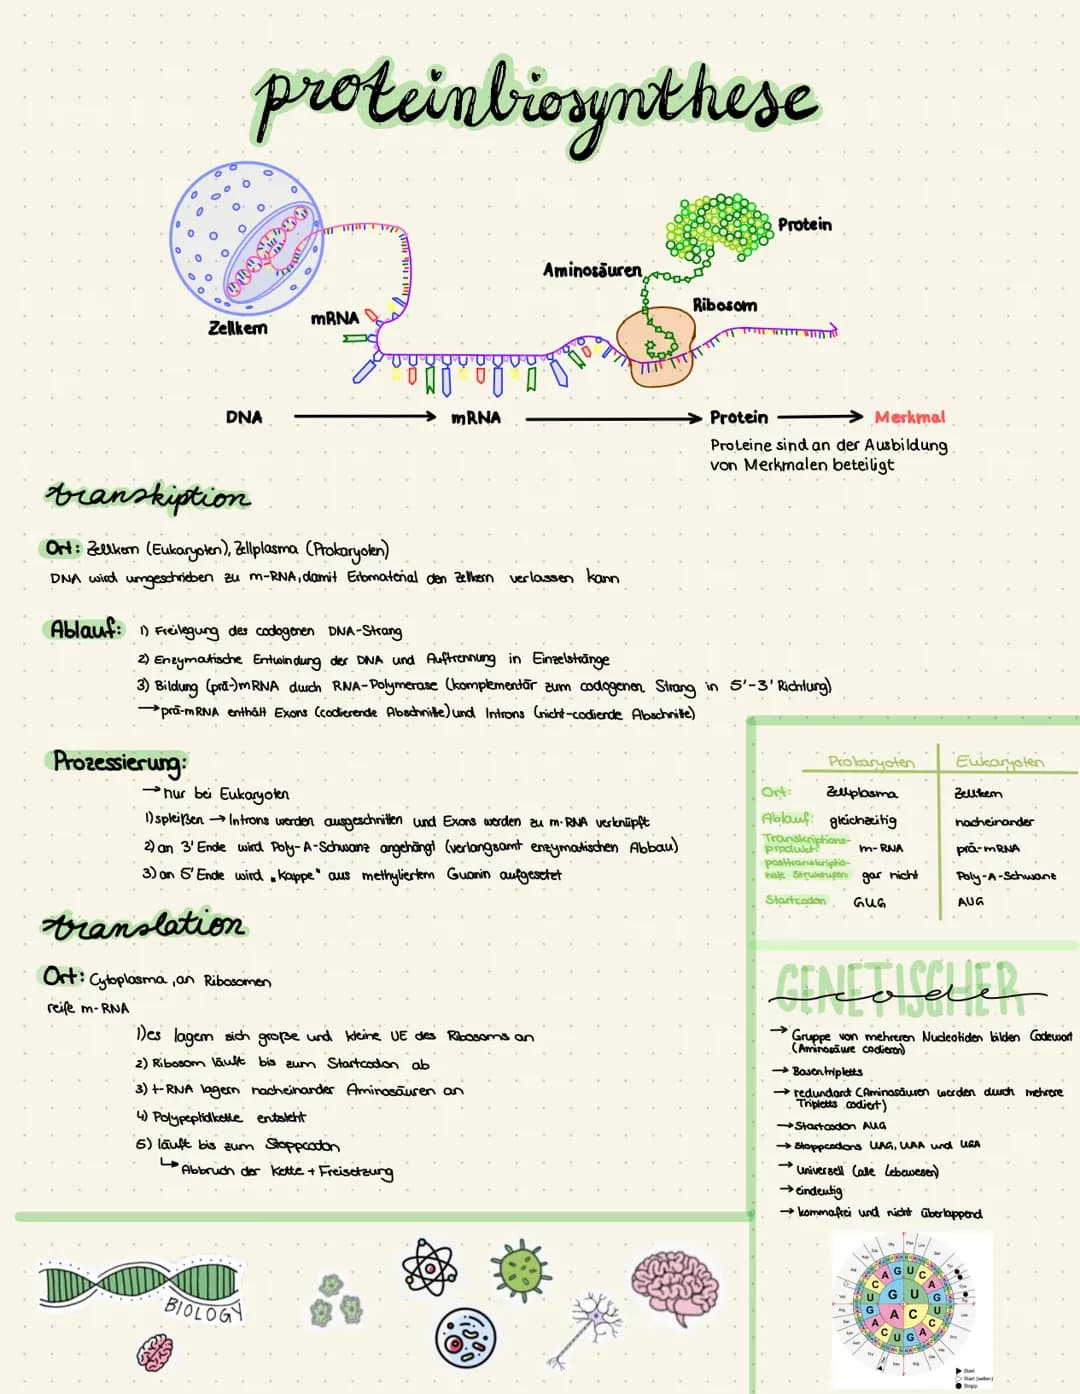 proteinbiosynthese
Protein
Aminosäuren
Ribosom
mRNA
Zellkern
DNA → mRNA → Protein → Merkmal
Proteine sind an der Ausbildung
von Merkmalen beteiligt
transkiption
Ort: Zellkern (Eukaryoten), Zellplasma (Prokaryoten)
DNA wird umgeschrieben zu m-RNA, damit Erbmaterial den Zellkern verlassen kann
Ablauf: 1) Freilegung des codogenen DNA-Strang
2) Enzymatische Entwindung der DNA und Auftrennung in Einzelstränge
3) Bildung (prä-)mRNA durch RNA-Polymerase (komplementär zum codogenen Strang in 5'-3' Richtung)
→ prä-mRNA enthält Exons (codierende Abschnitte) und Introns (nicht-codiende Abschnitte)
Prozessierung:
→ nur bei Eukaryoten
1) spleißen → Introns werden ausgeschnitten und Exons werden zu m-RNA verknüpft
2) an 3' Ende wird Poly-A-Schwanz angehängt (verlangsamt enzymatischen Abbau)
3) an 5' Ende wird „Kappe" aus methyliertem Guanin aufgesetzt
translation
Ort: Cytoplasma, an Ribosomen
reife m-RNA
1) es lagern sich große und kleine UE des Ribosoms an
2) Ribosom läuft bis zum Startcodon ab
3) t-RNA lagern nacheinander Aminosäuren an
4) Polypeptidkette entsteht
5) läuft bis zum Stoppcodon
↳ Abbruch der Kette + Freisetzung
Prokaryoten Eukaryoten
Ort: Zellplasma Zellkern
Ablauf: gleichzeitig nacheinander
Transkriptions-
produkt: m-RNA prä-mRNA
posttranskriptio-
nale Strukturen: gar nicht Poly-A-Schwanz
Startcodon GUG AUG
GENETISCHER
code
→ Gruppe von mehreren Nucleotiden bilden Codewort
(Aminosäure codieren)
→ Basentripletts
→ redundant (Aminosäuren werden durch mehrere
Tripletts codiert)
→ Startcodon AUG
→ Stoppcodons UAG, UAA und UGA
→ universell (alle Lebewesen)
→ eindeutig
→ kommafrei und nicht überlappend
BIOLOGY
A G U C
G U
A C
C U G A
Start
Start (selten)
Stopp